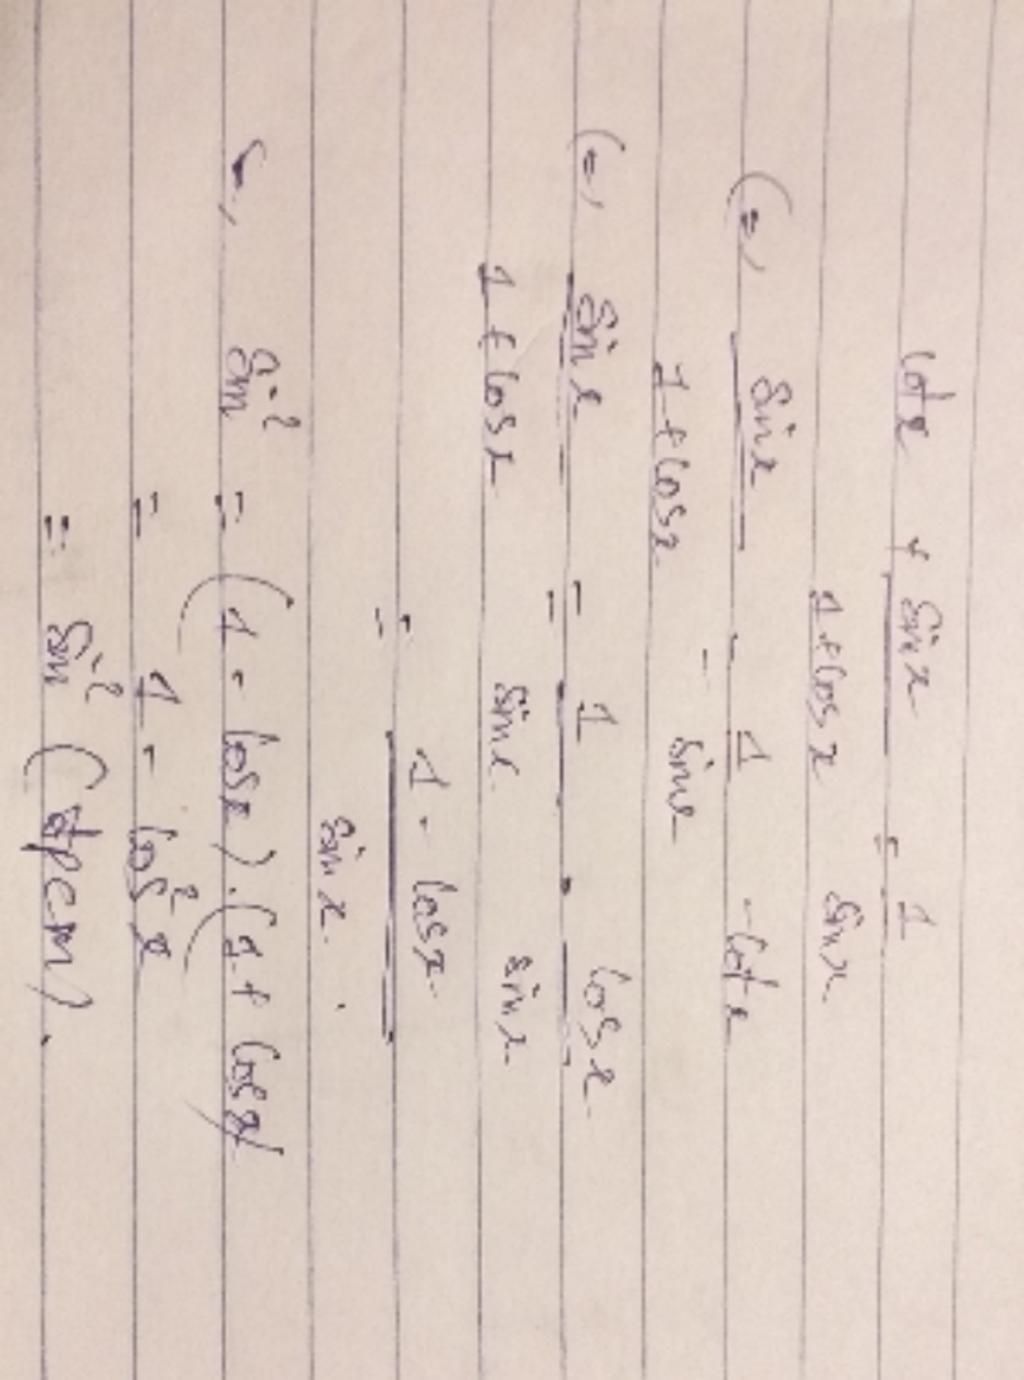 cot x + sin x / 1 + cos x = 1 / sin x
(=, sin x / 1 + cos x = 1 / sin x - cot x
(=, sin x / 1 + cos x = 1 / sin x - cos x / sin x
= 1 - cos x / sin x.
sin² = (1 - cos x).(1 + cos x)
= 1 - cos² x
= sin² (đpcm).